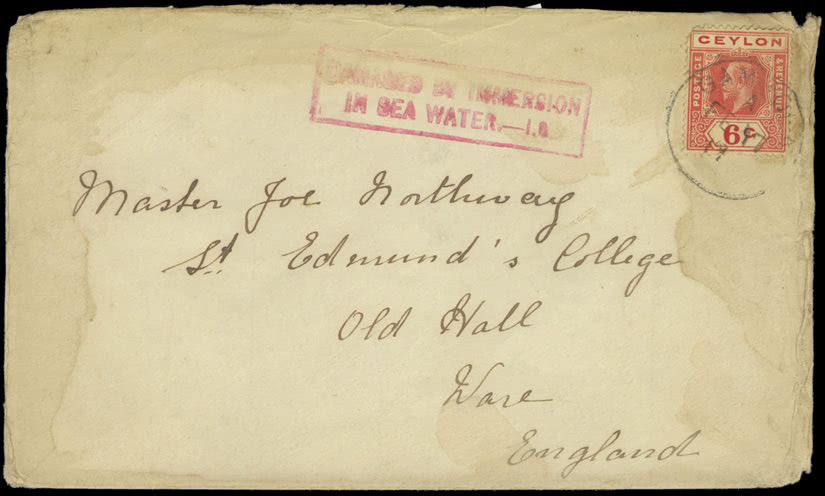 DAMAGED BY IMMERSION
IN SEA WATER.—I.
CEYLON
POSTAGE
& REVENUE
6c
Master Joe Northway
St Edmund's College
Old Hall
Ware
England